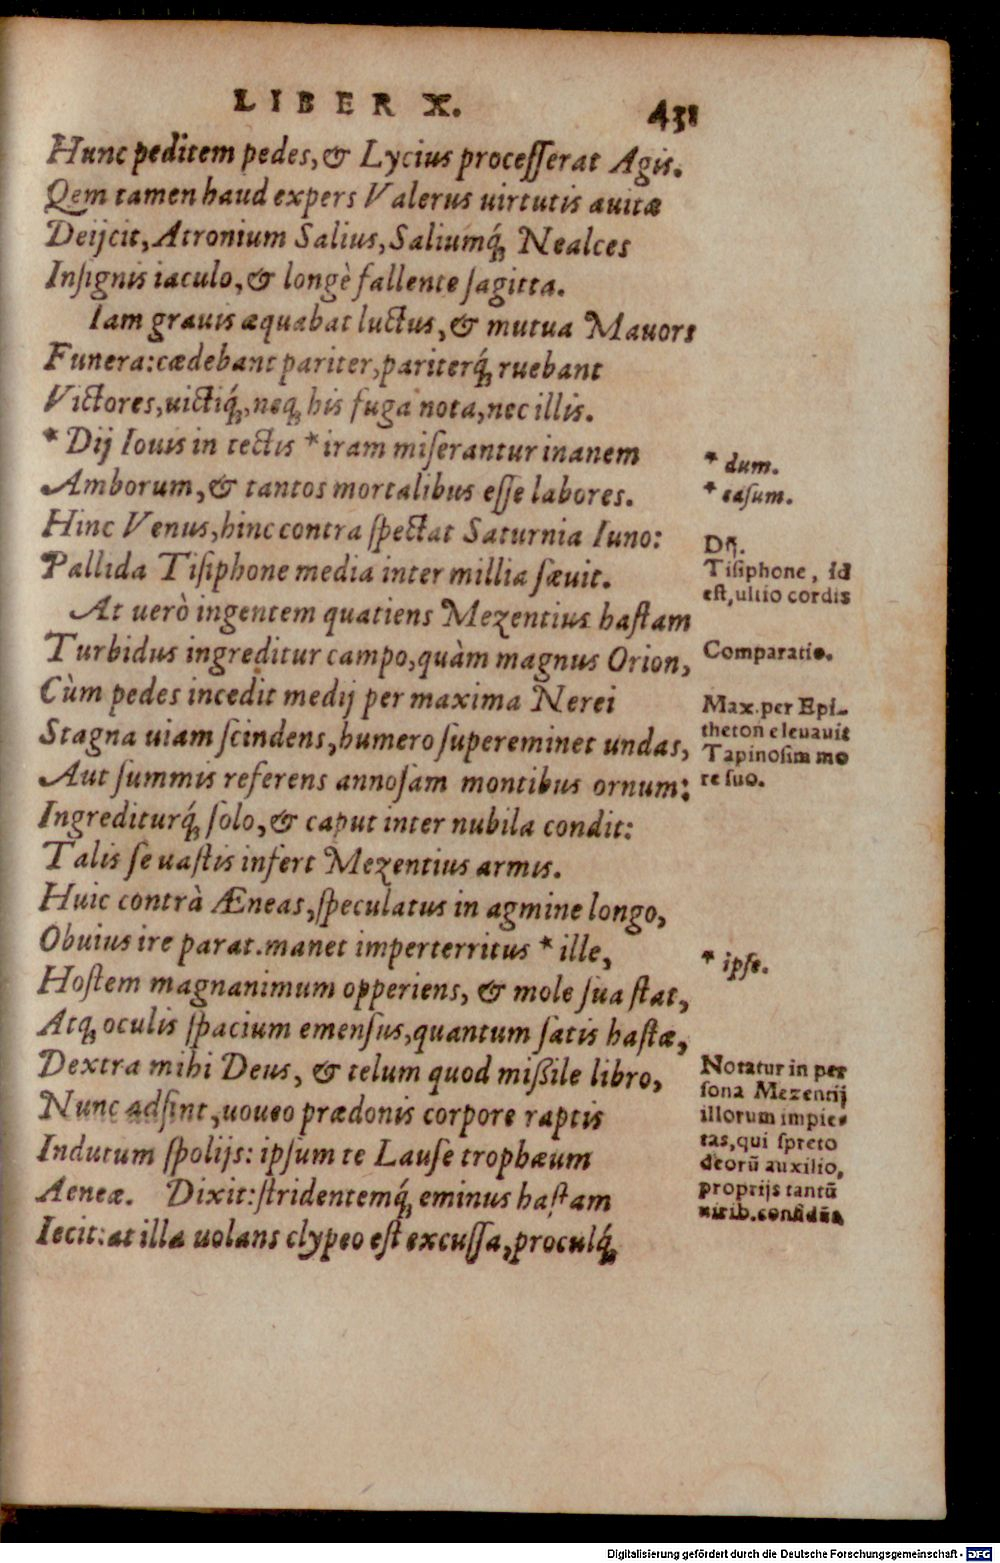 LIBER X. 431
Hunc peditem pedes, & Lycius processerat Agis.
Qem tamen haud expers Valerus uirtutis auitæ
Deijcit, Atronium Salius, Saliumq́; Nealces
Insignis iaculo, & longè fallente sagitta.
Iam grauis æquabat luctus, & mutua Mauors
Funera: cædebant pariter, pariterq́; ruebant
Victores, uictiq́;, neq; his fuga nota, nec illis.
* Dij Iouis in tectis * iram miserantur inanem
* dum.
Amborum, & tantos mortalibus esse labores.
* casum.
Hinc Venus, hinc contra spectat Saturnia Iuno:
Dij.
Pallida Tisiphone media inter millia sæuit.
Tisiphone, id
est, ultio cordis
At uerò ingentem quatiens Mezentius hastam
Turbidus ingreditur campo, quàm magnus Orion,
Comparatio.
Cùm pedes incedit medij per maxima Nerei
Max. per Epi-
Stagna uiam scindens, humero supereminet undas,
theton eleuauit
Tapinosim mo
Aut summis referens annosam montibus ornum:
re suo.
Ingrediturq́; solo, & caput inter nubila condit:
Talis se uastis infert Mezentius armis.
Huic contrà Æneas, speculatus in agmine longo,
Obuius ire parat. manet imperterritus * ille,
* ipse.
Hostem magnanimum opperiens, & mole sua stat,
Atq; oculis spacium emensus, quantum satis hastæ,
Dextra mihi Deus, & telum quod missile libro,
Notatur in per
sona Mezentij
Nunc adsint, uoueo prædonis corpore raptis
illorum impie-
tas, qui spreto
Indutum spolijs: ipsum te Lause trophæum
deorũ auxilio,
Aeneæ. Dixit: stridentemq́; eminus hastam
proprijs tantũ
uirib. confidũt
Iecit: at illa uolans clypeo est excussa, proculq́;
Digitalisierung gefördert durch die Deutsche Forschungsgemeinschaft - DFG